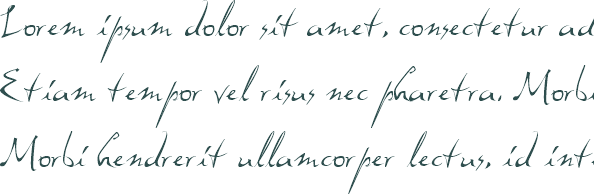 Lorem ipsum dolor sit amet, consectetur ad
Etiam tempor vel risus nec pharetra. Morbi
Morbi hendrerit ullamcorper lectus, id int